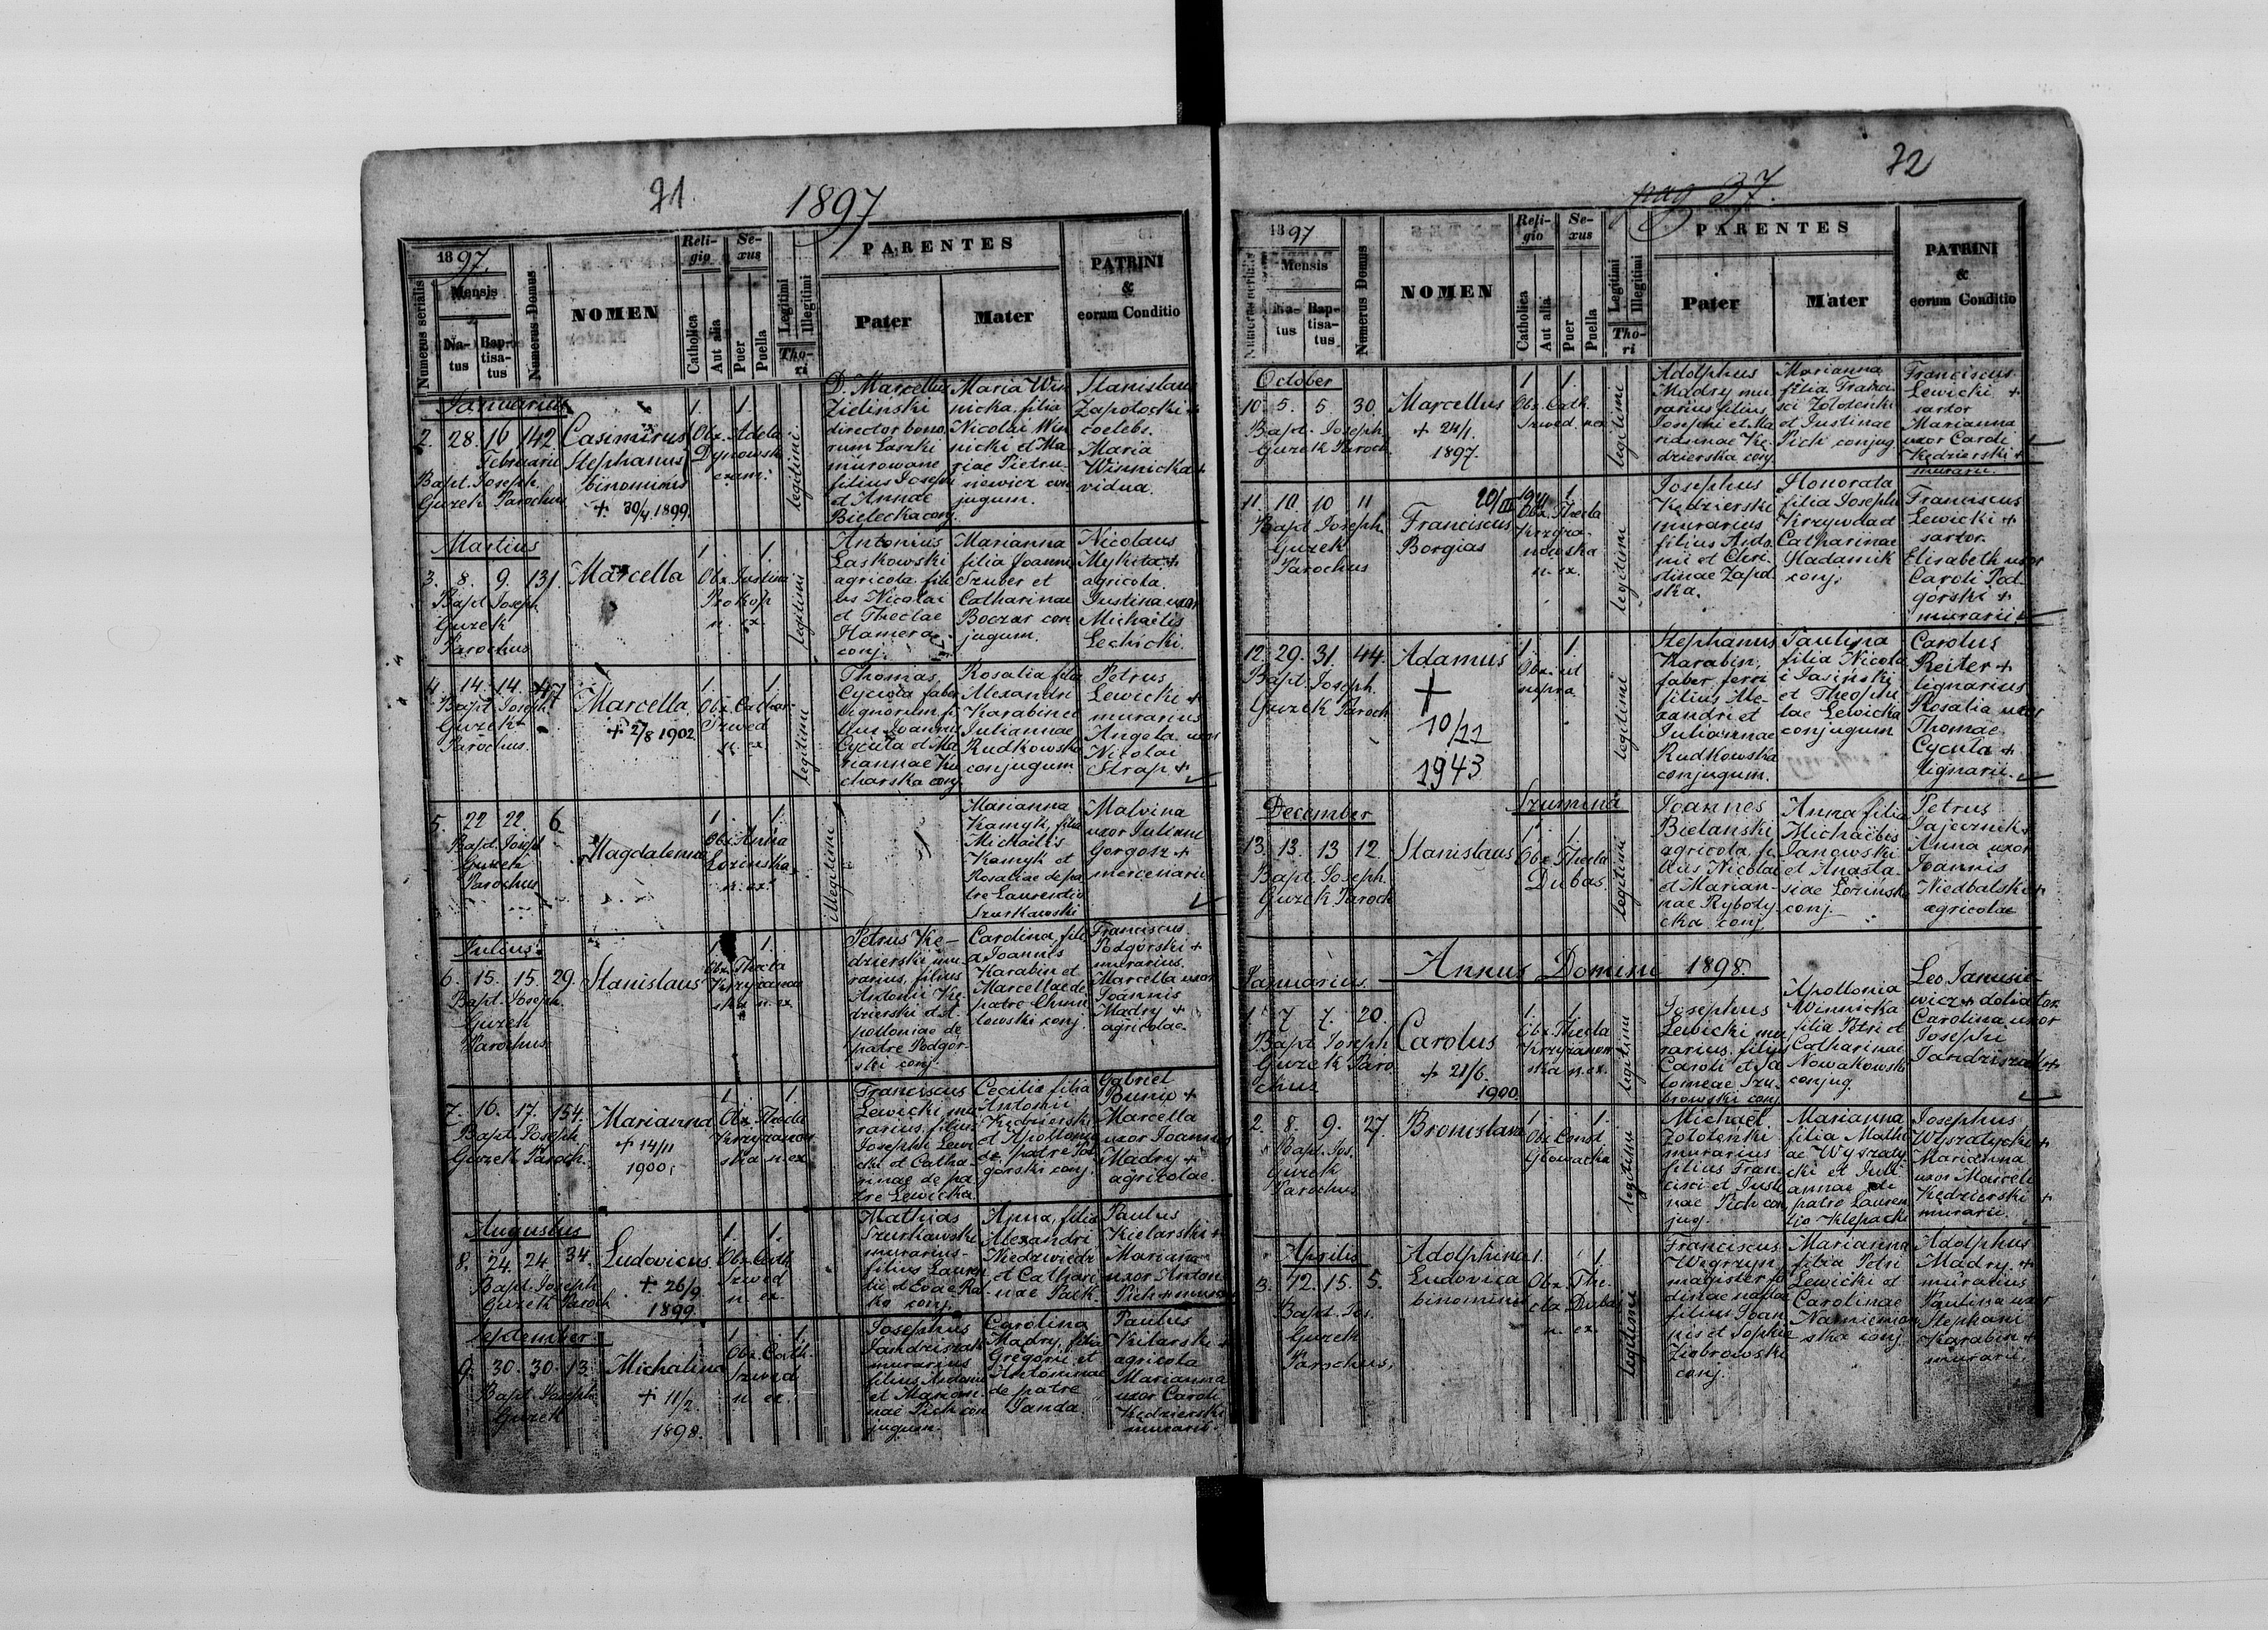 71.
1897
1897.
Numerus serialis
Mensis
Natus
Baptisatus
Numerus Domus
NOMEN
Religio
Catholica
Aut alia
Sexus
Puer
Puella
Legitimi
Illegitimi
Thori
PARENTES
Pater
Mater
PATRINI
&
eorum Conditio
Januarius
2. 28. 16 142
Februarii
Bapt. Joseph
Guzek Parochus
Casimirus
Stephanus
binominis
+ 30/4 1899.
1. 1.
Obx. Adela
Dynowsk
exam.
legitimi
D. Marcellus
Zielinski
director bono
rum Laszki
murowane
filius Josephi
et Annae
Bielecka conj.
Maria Win
nicka filia
Nicolai Win
nicki et Ma
riae Pietru
newicz con
jugum.
Stanislaus
Zapotocki +
coelebs.
Maria
Winnicka +
vidua.
Martius
3. 8. 9. 131.
Bapt. Joseph
Guzek
Parochus
Marcella
1. 1.
Obx. Justina
Prokop
n. ex
legitimi
Antonius
Laskowski
agricola fili
us Nicolai
et Theclae
Hamera
conj.
Marianna
filia Joanni
Szuber et
Catharinae
Boczar con
jugum.
Nicolaus
Mykita +
agricola.
Justina uxor
Michaelis
Lechicki.
4. 14. 14. 47
Bapt. Joseph
Guzek
Parochus.
Marcella
+ 2/8 1902
1. 1.
Obx. Cathar.
Szwed
n. ex
legitimi
Thomas
Cycuła faber
lignorum fi
lius Joannis
Cycuła et Ma
riannae Ku
charska conj.
Rosalia filia
Alexandri
Karabin et
Juliannae
Rudkowska
conjugum.
Petrus
Lewicki +
murarius
Angela uxor
Nicolai
Strap +
5. 22 22 6
Bapt. Joseph
Guzek
Parochus
Magdalena
1. 1.
Obx. Anna
Łozinska
n. ex.
illegitimi
Marianna
Kamyk, filia
Michaelis
Kamyk et
Rosaliae de pa
tre Laurentio
Szurkowski
Malvina
uxor Juliani
Gorgosz +
mercenarii
Julius.
6. 15. 15. 29.
Bapt. Joseph.
Guzek
Parochus
Stanislaus
1. 1.
Obx. Thecla
Krzyzanow
ska n. ex
Petrus Kę-
dzierski mu
rarius, filius
Antonii Kę
dzierski et A
polloniae de
patre Podgór
ski conj.
Carolina, fili
a Joannis
Karabin et
Marcellae de
patre Chmie
lewski conj.
Franciscus
Podgórski +
murarius.
Marcella uxor
Joannis
Madry +
agricolae.
7. 16. 17. 154.
Bapt. Joseph
Guzek Paroch.
Marianna
+ 14/11
1900.
1. 1.
Obx. Thecla
Krzyzanow
ska n. ex
Franciscus
Lewicki, mu
rarius, filius
Josephi Lewi
cki et Catha
rinae de pa
tre Lewicka.
Cecilia filia
Antonii
Kędzierski
et Apolloniae
de patre Pod
górski conj.
Gabriel
Bunio +
Marcella
uxor Joannis
Madry +
agricolae.
Augustus
8. 24. 24. 34.
Bapt. Joseph
Guzek Paroch
Ludovicus.
+ 26/9
1899.
1. 1.
Obx. Cath.
Szwed
n. ex.
Mathias
Szurkowski
murarius
filius Lauren
tii et Evae Ra
ko conj.
Anna, filia
Alexandri
Niedzwiedz
et Cathari
nae Pack.
Paulus
Kielarski +
Marianna
uxor Antoni
Pich + murarii
September
9. 30. 30. 13.
Bapt. Joseph
Guzek
Michalina
+ 11/2
1898.
1. 1.
Obx. Cath.
Szwed
n. ex.
Josephus
Jandziszak
murarius
filius Antonii
et Marian
nae Pich con
jugum.
Carolina
Madry, filia
Gregorii et
Antoninae
de patre
Janda
Paulus
Kilarski +
agricola
Marianna
uxor Caroli
Kędzierski
murarii.
72
pag 37.
1897
Numerus serialis
Mensis
Natus
Baptisatus
Numerus Domus
NOMEN
Religio
Catholica
Aut alia
Sexus
Puer
Puella
Legitimi
Illegitimi
Thori
PARENTES
Pater
Mater
PATRINI
&
eorum Conditio
October
10. 5. 5. 30.
Bapt. Joseph.
Guzek Paroch
Marcellus
+ 24/1.
1897.
1 1.
Obx. Cath.
Szwed. n ex
legitimi
Adolphus
Madry mu
rarius filius
Josephi et Ma
riannae Kę
dzierska conj.
Marianna
filia Franci
sci Zołoteńki
et Justinae
Pich conjug.
Franciscus
Lewicki +
sartor
Marianna
uxor Caroli
Kędzierski +
murarii.
11. 10. 10 11
Bapt. Joseph.
Guzek
Parochus
Franciscus
Borgias
Obx. Thecla
n. ex.
legitimi
Josephus
Kędzierski
murarius
filius Anto
nii et Chri
stinae Zapał
ska.
Honorata
filia Josephi
Krzywda et
Catharinae
Hadamik
conj.
Franciscus
Lewicki +
sartor.
Elisabeth uxor
Caroli Pod
górski +
murarii
12. 29. 31. 44.
Bapt. Joseph.
Guzek Paroch
Adamus
+
10/11
1943
1. 1.
Obx. ut
supra.
legitimi
Stephanus
Karabin,
faber ferri
filius Ale
xandri et
Juliannae
Rudkowska
conjugum.
Paulina
filia Nicola
i Jasiński
et Theophi
lae Lewicka
conjugum
Carolus
Reiter +
lignarius
Rosalia uxor
Thomae
Cycuła +
lignarii.
December
Szumina
13. 13. 13 12.
Bapt. Joseph.
Guzek Paroch
Stanislaus
1. 1.
Obx. Thecla
Dubas.
legitimi
Joannes
Bielanski
agricola, fi
lius Nicolai
et Marian
nae Ryboty
cka conj.
Anna filia
Michaëlis
Janowski
et Anasta
siae Łozinska
conj.
Petrus
Jajecznik +
Anna uxor
Joannis
Niedbalski +
agricolae
Annus Domini 1898.
Januarius
1. 7. 7. 20.
Bapt. Joseph
Guzek Paro
chus
Carolus
+ 21/6.
1900.
1. 1.
Obx. Thecla
Krzyzanow
ska n. ex.
legitimi
Josephus
Lewicki mu
rarius. filius
Caroli et Sa
lomeae Szu
browski conj.
Apollonia
Winnicka
filia Petri et
Catharinae
Nowakowski
conjug.
Leo Janusie
wicz + doliator
Carolina uxor
Josephi
Jandziszak +
2. 8. 9. 27.
Bapt. Jos.
Guzek
Parochus
Bronislava
1. 1.
Obx. Const.
Głowacka
legitimi
Michael
Zołoteńki
murarius
filius Fran
cisci et Justi
nae Pich con
jug.
Marianna
filia Mathi
ae Wyszaty
cki et Juli
annae de
patre Lauren
tio Klepacki
Josephus
Wyszatycki +
Marianna
uxor Marceli
Kędzierski +
murarii.
Aprilis
3. 12. 15. 5.
Bapt. Jos.
Guzek
Parochus.
Adolphina
Ludovica
binominis
1. 1.
Obx. The
cla Dubas
n. ex.
legitimi
Franciscus
Węgrzyn,
magister
filius Joan
nis et Sophie
Ziobrowski
conj.
Marianna
filia Petri
Lewicki et
Carolinae
ska conj.
Adolphus
Madry +
murarius
Paulina uxor
Stephani
Karabin +
murarii.